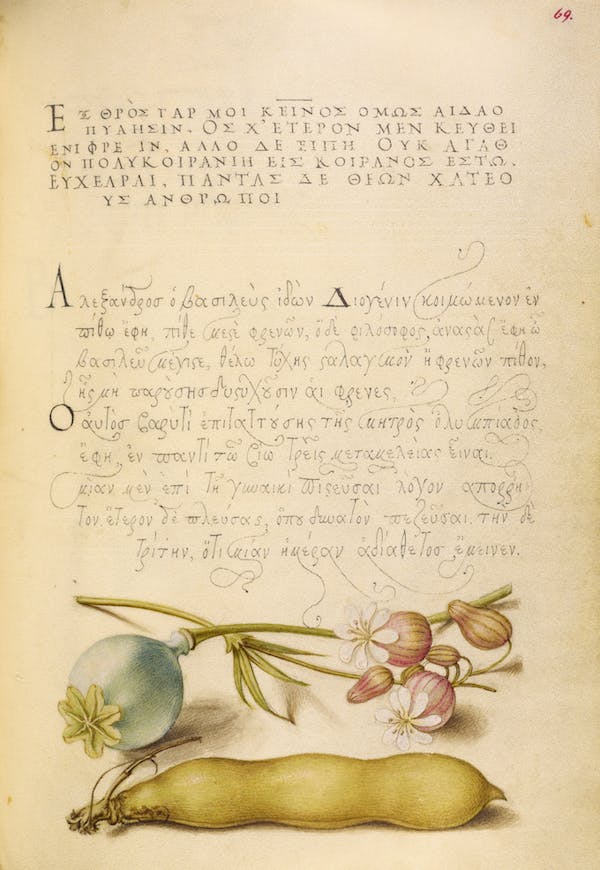 69.
ΕΣ ΘΡῸΣ ΓΑΡ ΜΟΙ ΚΕΙΝΟΣ ΟΜΩΣ ΑΙΔΑΟ
ΠΥΛΗΣΙΝ. ΟΣ Χ' ΕΤΕΡΟΝ ΜΕΝ ΚΕΥΘΕΙ
ΕΝΙ ΦΡΕ ΙΝ, ΑΛΛΟ ΔΕ ΕΙΠΗ ΟΥΚ ΑΓΑΘ
ΟΝ ΠΟΛΥΚΟΙΡΑΝΙΗ ΕΙΣ ΚΟΙΡΑΝΟΣ ΕΣΤΩ.
ΠΑΝΤΑΣ ΔΕ ΘΕΩΝ ΧΑΤΕΟ
ΥΣ ΑΝΘΡΩΠΟΙ
Αλεξανδρος ὁ βασιλεὺς ἰδὼν Διογένην κοιμώμενον ἐν
πίθῳ ἔφη, πίθε φρενῶν, ὁ δὲ φιλόσοφος, ἔφη ὦ
βασιλεῦ θέλω τύχης σαλαγμὸν ἢ φρενῶν πίθον,
ἧς μὴ αἱ φρενες.
Ο αὐτὸς τῆς μητρὸς ὀλυμπιάδος
ἔφη, ἐν παντὶ τῶ βίω τρεῖς μεταμελείας εἶναι.
μίαν μὲν ἐπὶ τῇ γυναικὶ λόγον απορρη
τον. ἕτερον δὲ πλεύσας, ὅπου πεζεῦσαι. τὴν δὲ
τρίτην, ὅτι μίαν ἡμέραν ἀδιαθετος ἔμεινεν.